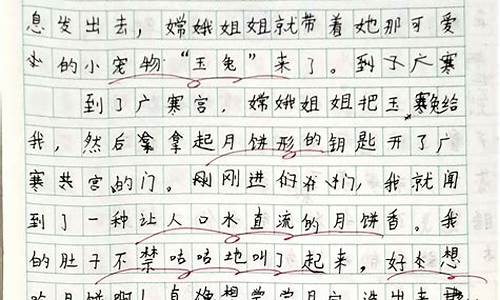 息发出去，嫦娥姐姐就带着她那可爱
的小宠物“玉兔”来了。到了广寒
到了广寒宫，嫦娥姐姐把玉兔给
我，然后拿起月饼形的钥匙开了广
寒宫的门。刚刚进们，我就闻
到了一种让人口水直流的月饼香。我
的肚子不禁咕咕地叫了起来，好想
月饼啊！真想